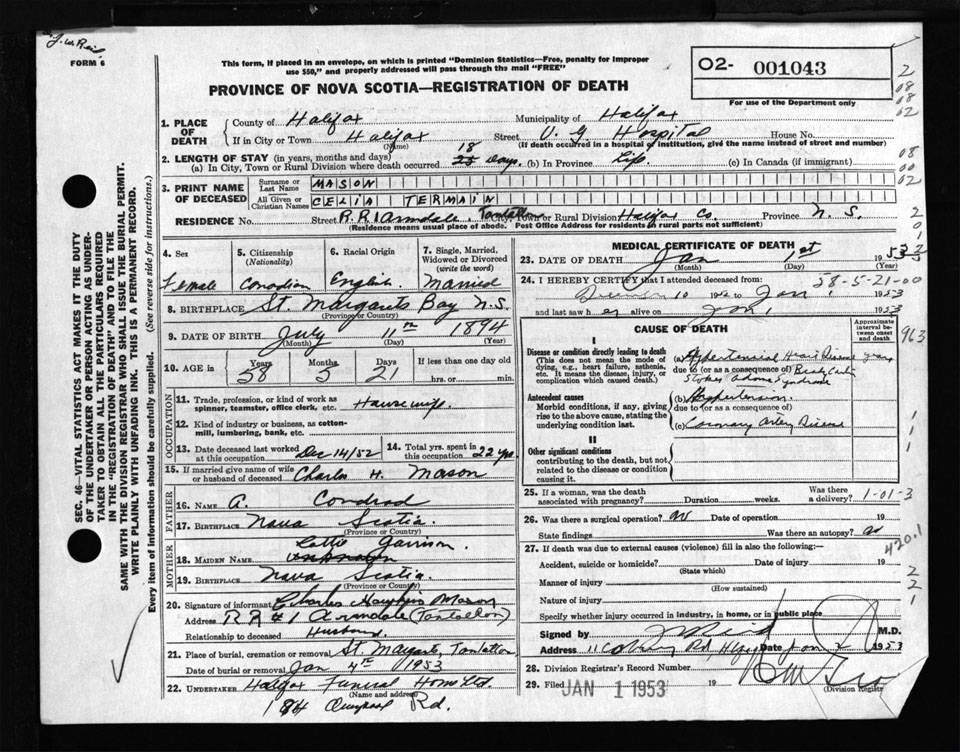 FORM 6
This form, if placed in an envelope, on which is printed "Dominion Statistics—Free, penalty for improper
use $50," and properly addressed will pass through the mail "FREE"
PROVINCE OF NOVA SCOTIA—REGISTRATION OF DEATH
O2- 001043
For use of the Department only
1. PLACE OF DEATH
County of Halifax Municipality of Halifax
If in City or Town Halifax Street V. G Hospital House No.
(Name) (If death occurred in a hospital or institution, give the name instead of street and number)
2. LENGTH OF STAY (in years, months and days)
(a) In City, Town or Rural Division where death occurred 18 days. (b) In Province Life. (c) In Canada (if immigrant)
3. PRINT NAME OF DECEASED
Surname or Last Name MASON
All Given or Christian Names CELIA TERMAIN
RESIDENCE No. Street R.R.1 Armdale. Tantallon City, Town or Rural Division Halifax Co. Province N. S.
(Residence means usual place of abode. Post Office Address for residents in rural parts not sufficient)
4. Sex
Female
5. Citizenship
(Nationality)
Canadian
6. Racial Origin
English
7. Single, Married, Widowed or Divorced
(write the word)
Married
8. BIRTHPLACE St. Margarets Bay N.S.
(Province or Country)
9. DATE OF BIRTH July 11th 1894
(Month) (Day) (Year)
10. AGE in
Years Months Days If less than one day old
58 5 21 hrs. or min.
OCCUPATION
11. Trade, profession, or kind of work as spinner, teamster, office clerk, etc. Housewife.
12. Kind of industry or business, as cotton-mill, lumbering, bank, etc.
13. Date deceased last worked at this occupation Dec 14/52
14. Total yrs. spent in this occupation 22 yrs
15. If married give name of wife or husband of deceased Charles H. Mason
FATHER
16. Name A. Conrad
17. Birthplace Nova Scotia.
(Province or Country)
MOTHER
18. Maiden Name Garrison.
19. Birthplace Nova Scotia.
(Province or Country)
20. Signature of informant Charles Mason
Address R R #1 Armdale (Tantallon)
Relationship to deceased Husband
21. Place of burial, cremation or removal St. Margarets, Tantallon
Date of burial or removal Jan 4th 1953
22. UNDERTAKER Halifax Funeral Home Ltd.
(Name and address)
Rd.
MEDICAL CERTIFICATE OF DEATH
23. DATE OF DEATH Jan 1st 1953
(Month) (Day) (Year)
24. I HEREBY CERTIFY that I attended deceased from: 58-5-21-00
December 10 1952 to Jan 1 1953
and last saw her alive on Jan 1 1953
CAUSE OF DEATH
Approximate interval between onset and death
I
Disease or condition directly leading to death
(This does not mean the mode of dying, e.g., heart failure, asthenia, etc. It means the disease, injury, or complication which caused death.)
(a) Hypertensive Heart Disease years
due to (or as a consequence of)
Stokes Adams Syndrome
Antecedent causes
Morbid conditions, if any, giving rise to the above cause, stating the underlying condition last.
(b) Hypertension.
due to (or as a consequence of)
(c) Coronary Artery Disease
II
Other significant conditions
contributing to the death, but not related to the disease or condition causing it.
25. If a woman, was the death associated with pregnancy? Duration weeks. Was there a delivery? 1-01-3
26. Was there a surgical operation? no Date of operation 19
State findings Was there an autopsy? no
420.1
27. If death was due to external causes (violence) fill in also the following:—
Accident, suicide or homicide? Date of injury 19
(State which)
Manner of injury
(How sustained)
Nature of injury
Specify whether injury occurred in industry, in home, or in public place
Signed by J Reid M.D.
Address Rd, Hfx Date Jan 2 1953
28. Division Registrar's Record Number
29. Filed JAN 1 1953
(Division Registrar)
SEC. 46—VITAL STATISTICS ACT MAKES IT THE DUTY
OF THE UNDERTAKER OR PERSON ACTING AS UNDER-
TAKER TO OBTAIN ALL THE PARTICULARS REQUIRED
IN THE "REGISTRATION OF DEATH" AND TO FILE THE
SAME WITH THE DIVISION REGISTRAR WHO SHALL ISSUE THE BURIAL PERMIT.
WRITE PLAINLY WITH UNFADING INK. THIS IS A PERMANENT RECORD.
Every item of information should be carefully supplied. (See reverse side for instructions.)